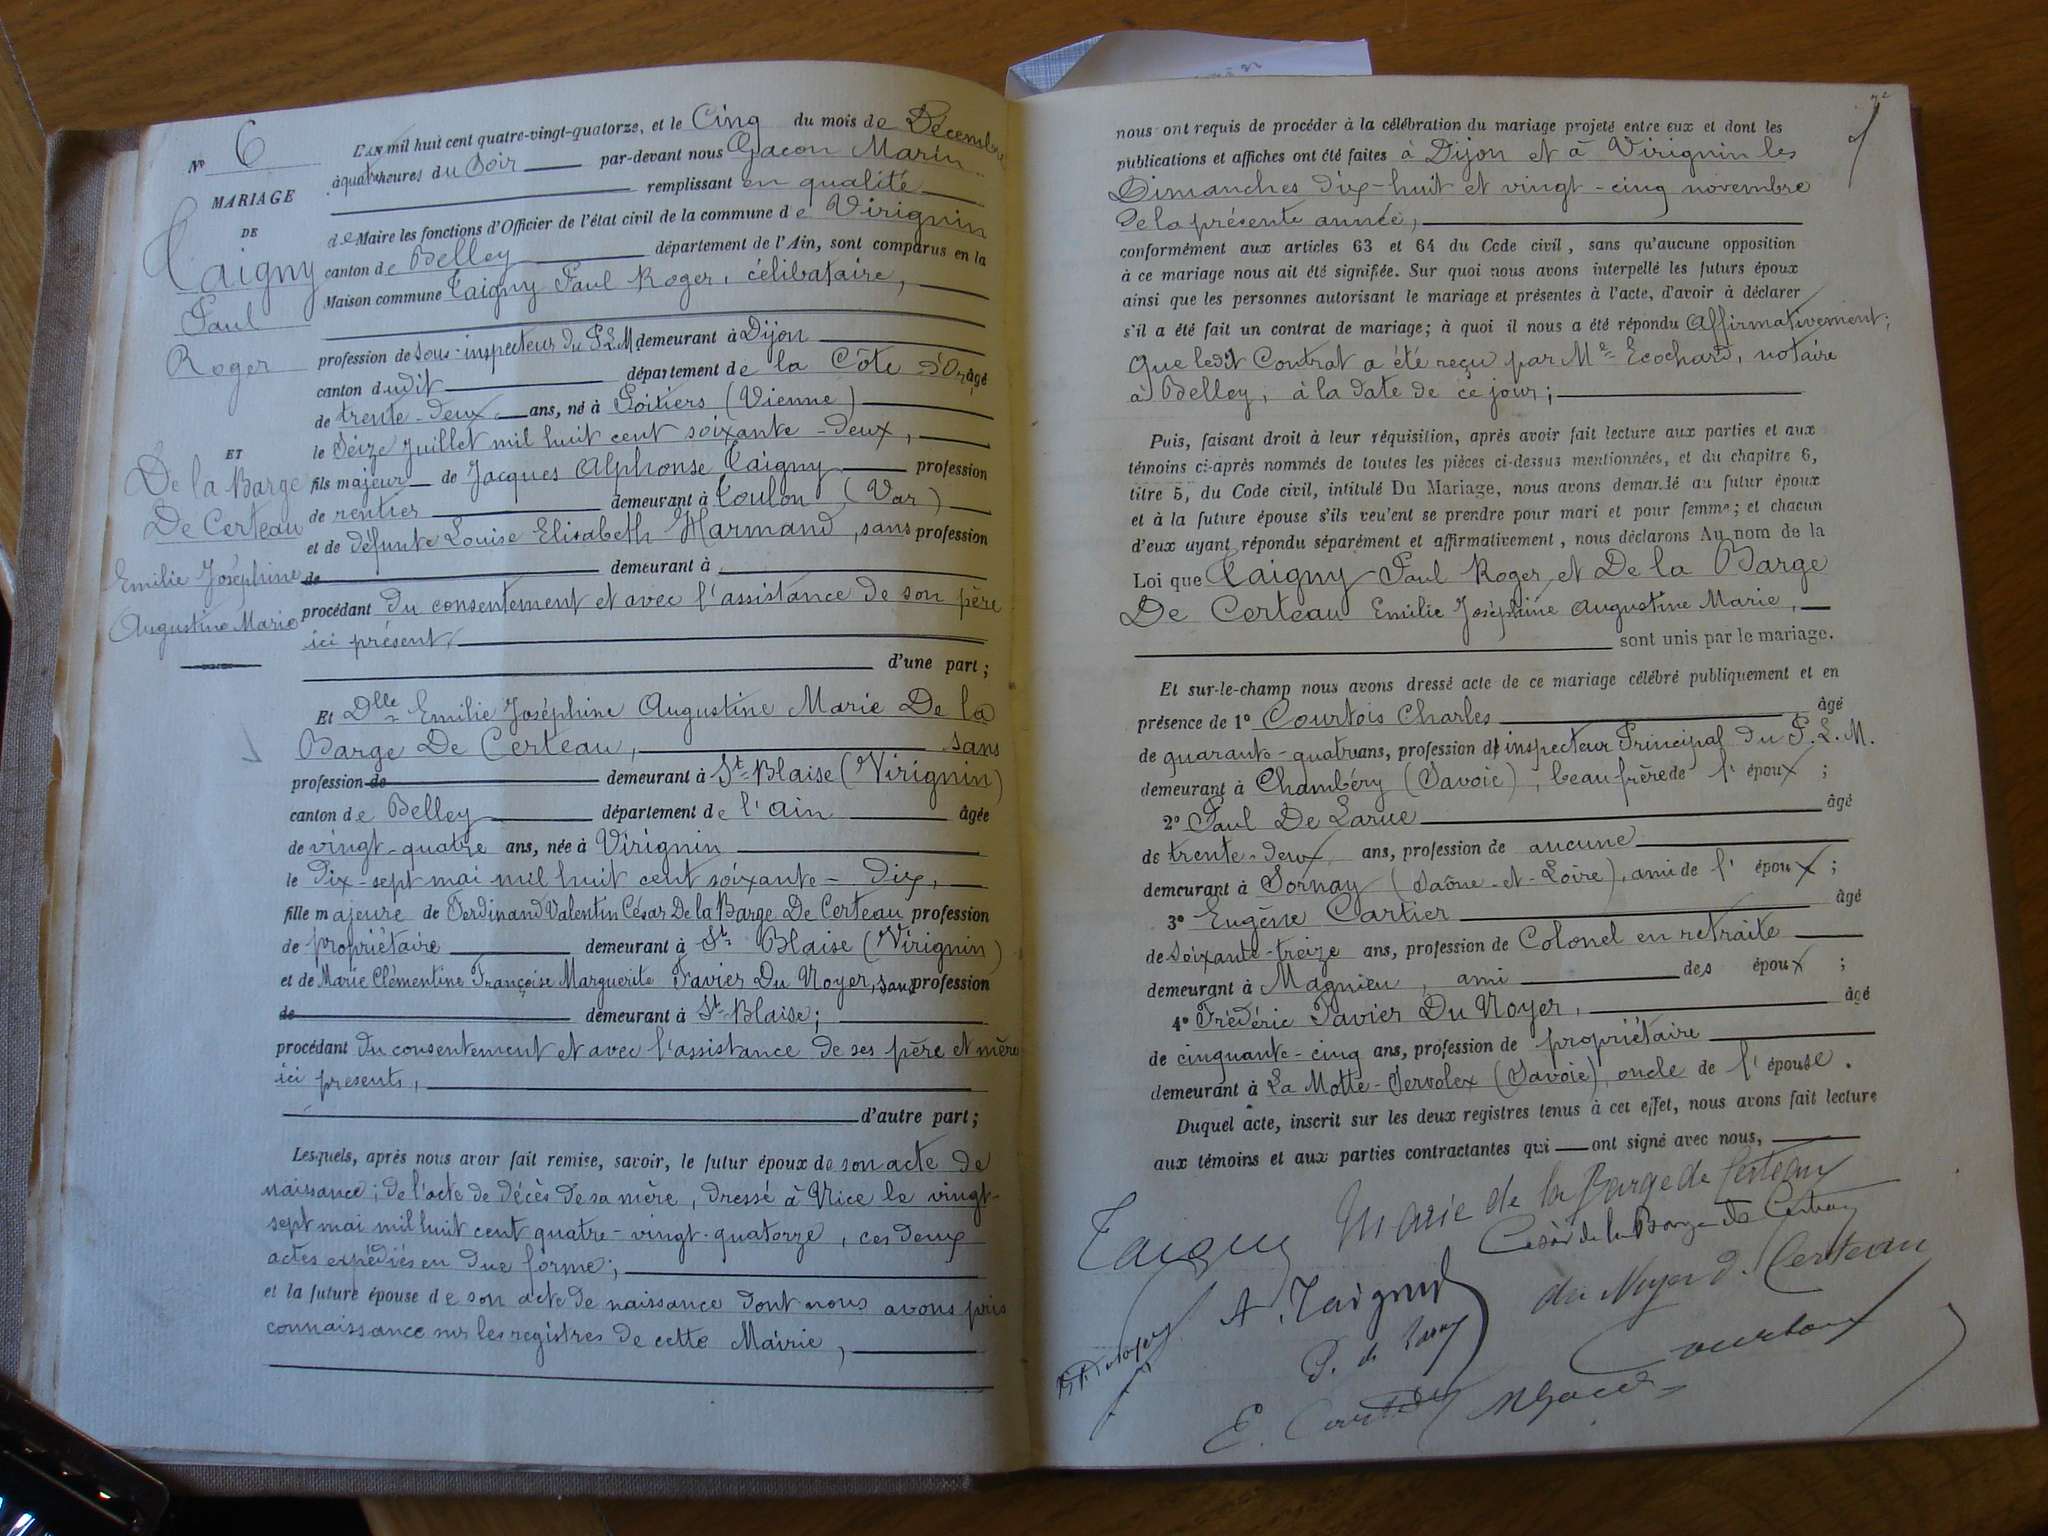 N° 6
MARIAGE
DE
Taigny
Paul
Roger
ET
De la Barge
De Certeau
Emilie Joséphine
Augustine Marie
L'AN mil huit cent quatre-vingt-quatorze, et le Cinq du mois de Décembre
à quatre heures du Soir par-devant nous Gacon Marin
remplissant en qualité
de Maire les fonctions d'Officier de l'état civil de la commune de Virignin
canton de Belley département de l'Ain, sont comparus en la
Maison commune Taigny Paul Roger, célibataire,
profession de Sous-inspecteur du P.L.M. demeurant à Dijon
canton dudit département de la Côte d'Or, âgé
de trente-deux ans, né à Poitiers (Vienne)
le Seize Juillet mil huit cent soixante-deux,
fils majeur de Jacques Alphonse Taigny profession
de rentier demeurant à Toulon (Var)
et de défunte Louise Elisabeth Harmand, sans profession
de demeurant à
procédant du consentement et avec l'assistance de son père
ici présent,
d'une part ;
Et Dlle Emilie Joséphine Augustine Marie De la
Barge De Certeau, sans
profession de demeurant à St Blaise (Virignin)
canton de Belley département de l'ain âgée
de vingt-quatre ans, née à Virignin
le dix-sept mai mil huit cent soixante-dix,
fille majeure de Ferdinand Valentin César De la Barge De Certeau profession
de propriétaire demeurant à St Blaise (Virignin)
et de Marie Clémentine Françoise Marguerite Favier Du Noyer, sans profession
de demeurant à St Blaise ;
procédant du consentement et avec l'assistance de ses père et mère
ici présents,
d'autre part ;
Lesquels, après nous avoir fait remise, savoir, le futur époux de son acte de
naissance ; de l'acte de décès de sa mère, dressé à Nice le vingt-
sept mai mil huit cent quatre-vingt-quatorze, ces deux
actes expédiés en due forme ;
et la future épouse de son acte de naissance dont nous avons pris
connaissance sur les registres de cette Mairie,
nous ont requis de procéder à la célébration du mariage projeté entre eux et dont les
publications et affiches ont été faites à Dijon et à Virignin les
Dimanches dix-huit et vingt-cinq novembre
de la présente année,
conformément aux articles 63 et 64 du Code civil, sans qu'aucune opposition
à ce mariage nous ait été signifiée. Sur quoi nous avons interpellé les futurs époux
ainsi que les personnes autorisant le mariage et présentes à l'acte, d'avoir à déclarer
s'il a été fait un contrat de mariage ; à quoi il nous a été répondu Affirmativement ;
que ledit Contrat a été reçu par Me Ecochard, notaire
à Belley, à la date de ce jour ;
Puis, faisant droit à leur réquisition, après avoir fait lecture aux parties et aux
témoins ci-après nommés de toutes les pièces ci-dessus mentionnées, et du chapitre 6,
titre 5, du Code civil, intitulé Du Mariage, nous avons demandé au futur époux
et à la future épouse s'ils veulent se prendre pour mari et pour femme ; et chacun
d'eux ayant répondu séparément et affirmativement, nous déclarons Au nom de la
Loi que Taigny Paul Roger, et De la Barge
De Certeau Emilie Joséphine Augustine Marie,
sont unis par le mariage.
Et sur-le-champ nous avons dressé acte de ce mariage célébré publiquement et en
présence de 1° Courtois Charles âgé
de quarante-quatre ans, profession d'inspecteur Principal du P.L.M.
demeurant à Chambéry (Savoie), beau frère de l'époux ;
2° Paul De Larue âgé
de trente-deux ans, profession de aucune
demeurant à Sornay (Saône-et-Loire), ami de l'époux ;
3° Eugène Cartier âgé
de Soixante-treize ans, profession de Colonel en retraite
demeurant à Magnieu, ami des époux ;
4° Frédéric Favier Du Noyer, âgé
de cinquante-cinq ans, profession de propriétaire
demeurant à La Motte-Servolex (Savoie), oncle de l'épouse.
Duquel acte, inscrit sur les deux registres tenus à cet effet, nous avons fait lecture
aux témoins et aux parties contractantes qui ont signé avec nous,
Taigny Marie de la Barge de Certeau
César de la Barge de Certeau
A. Taigny du Noyer d. Certeau
P. de Larue Courtois
E. Cartier MGacon